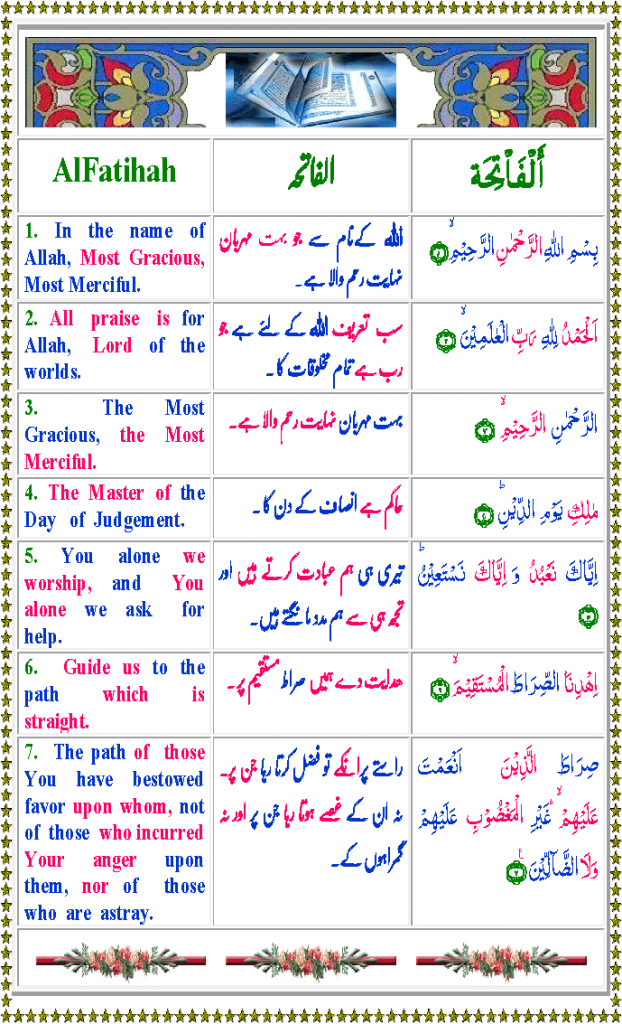 AlFatihah
الفاتحہ
أَلْفَاْتِحَة
1. In the name of
Allah, Most Gracious,
Most Merciful.
اللہ کےنام سے جو بہت مہربان
نہایت رحم والا ہے۔
بِسْمِ اللهِ الرَّحْمٰنِ الرَّحِيْمِۙ ۝۱
2. All praise is for
Allah, Lord of the
worlds.
سب تعریف اللہ کے لئے ہے جو
رب ہے تمام مخلوقات کا۔
اَلْحَمْدُ لِلّٰهِ رَبِّ الْعٰلَمِيْنَۙ ۝۲
3. The Most
Gracious, the Most
Merciful.
بہت مہربان نہایت رحم والا ہے۔
الرَّحْمٰنِ الرَّحِيْمِۙ ۝۳
4. The Master of the
Day of Judgement.
حاکم ہے انصاف کے دن کا۔
مٰلِكِ يَوْمِ الدِّيْنِؕ ۝۴
5. You alone we
worship, and You
alone we ask for
help.
تیری ہی ہم عبادت کرتے ہیں اور
تجھ ہی سے ہم مدد مانگتے ہیں۔
اِيَّاكَ نَعْبُدُ وَ اِيَّاكَ نَسْتَعِيْنُؕ
6. Guide us to the
path which is
straight.
ھدایت دے ہمیں صراط مستقیم پر۔
اِهْدِنَا الصِّرَاطَ الْمُسْتَقِيْمَۙ ۝۶
7. The path of those
You have bestowed
favor upon whom, not
of those who incurred
Your anger upon
them, nor of those
who are astray.
راستے پر انکے تو فضل کرتا رہا جن پر۔
نہ ان کے غصے ہوتا رہا جن پر اور نہ
گمراہوں کے۔
صِرَاطَ الَّذِيْنَ اَنْعَمْتَ
عَلَيْهِمْ ۙ غَيْرِ الْمَغْضُوْبِ عَلَيْهِمْ
وَلَا الضَّآلِّيْنَ ۝۷